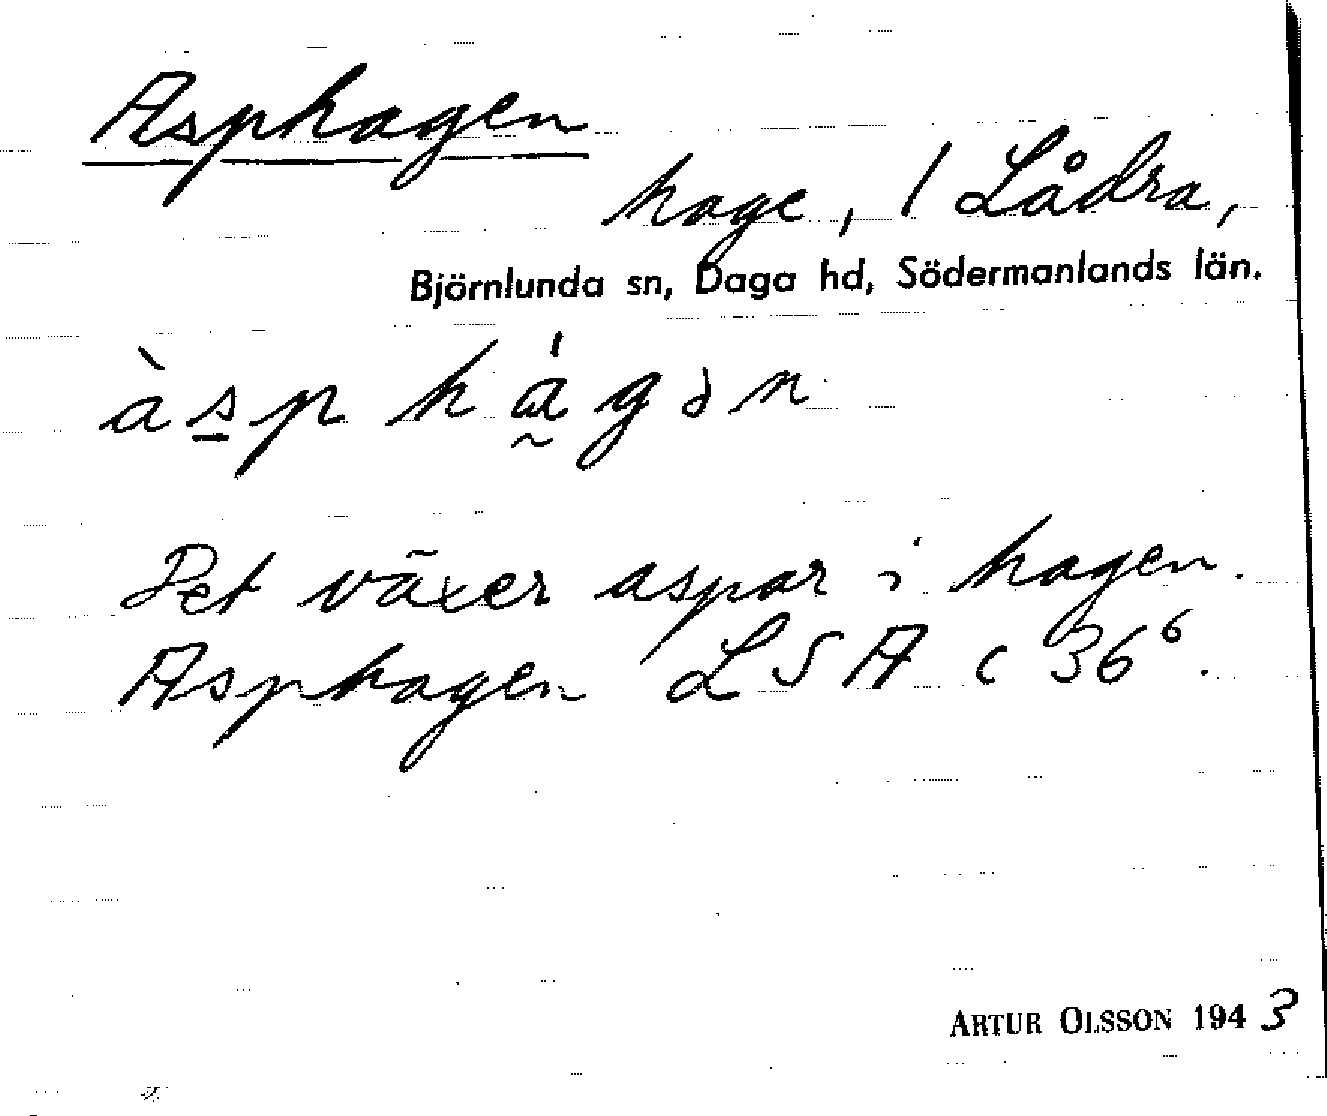 Asphagen
hage, 1 Lådra,
Björnlunda sn, Daga hd, Södermanlands län.
àsp hágən
Det växer aspar i hagen.
Asphagen LSA C 36⁶.
ARTUR OLSSON 1943